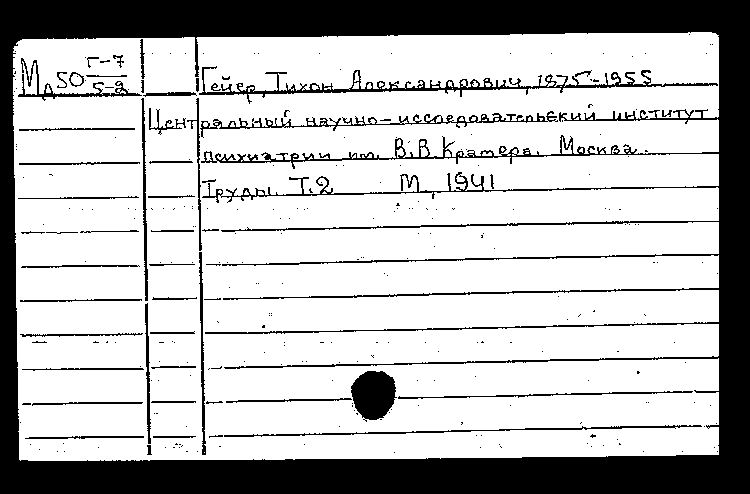 Мд50 Г-7/5-2 Гейер, Тихон Александрович, 1875-1955
Центральный научно-исследовательский институт
психиатрии им. В.В.Крамера. Москва.
Труды. Т.2 М., 1941